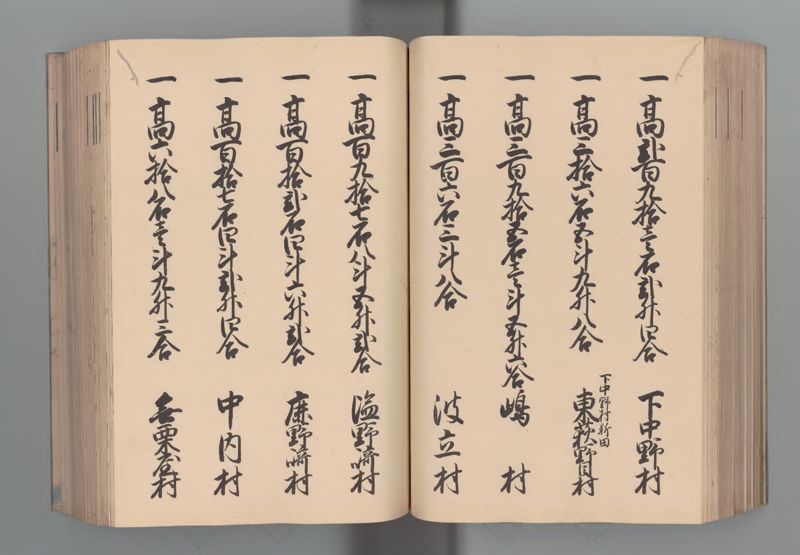 一 高弐百九拾壱石弐升四合 下中野村
一 高三拾六石五斗九升八合 下中野村新田 東荻野目村
一 高三百九拾五石壱斗五升六合 嶋村
一 高三百六石三斗八合 波立村
一 高百九拾七石八斗五升弐合 塩野崎村
一 高百拾弐石四斗六升弐合 野崎村
一 高百拾七石四斗弐升四合 中内村
一 高六拾八石壱斗九升三合 無栗屋村